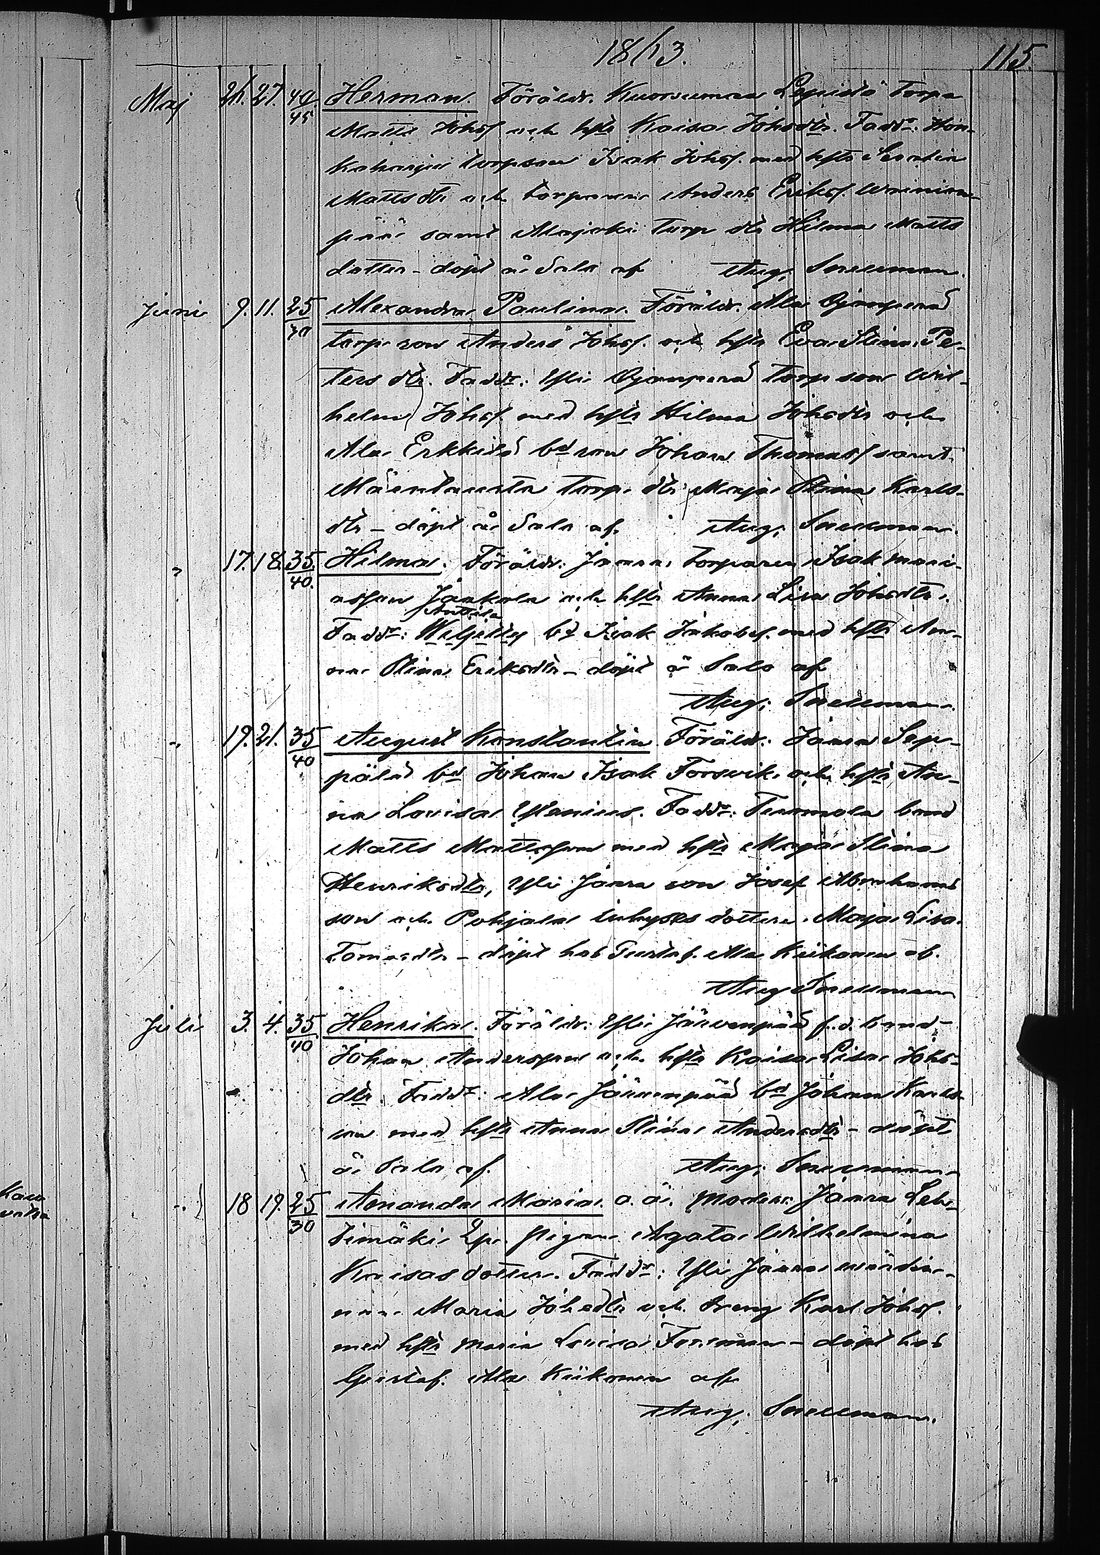 1863. 115.
Maj 26. 27. 40/45 Herman. Föräldr. Torp.
Matts Johsf. och hstr Kaisa Johsdtr. Fadd: Hon-
kaharju torpson Isak Johsf. med hstr Serafia
Mattsdtr och torparen Anders Eriksf. Wainion-
pää samt torp. dtr Hilma Matts
dotter – döpt å Salo af Aug. Snellman.
Juni 9. 11. 25/30 Alexandra Paulina. Föräldr. Ala Ojanperä
torp. son Anders Johsf. och hstr Eva Stina Pe-
tersdtr. Fadd: Yli Ojanperä torpson Wil-
helm Johsf. med hstr Hilma Johsdtr och
Ala Erkkilä bd son Johan Thomasf samt
Mäentausta torp. dtr Maja Stina Karls-
dtr – döpt å Salo af. Aug. Snellman.
" 17. 18. 35/40. Hilma. Föräldr: Jaara torparen Isak
Jaakola och hstr Anna Lisa Johsdtr.
Anttila
Fadd: bd Isak Jakobsf. med hstr An-
na Stina Eriksdtr – döpt å Salo af
Aug. Snellman.
" 19. 21. 35/40 August Konstantin. Föräldr: Jaara Sep-
pälä bd Johan Isak Forsvik och hstr An-
na Lovisa Ylenius. Fadd: Tuomola bond
Matts Mattsson med hstr Maja Stina
Henriksdtr, Yli Jaara son Josef Abrahams
son och Pohjala inhyses dotter Maja Lisa
Tomasdtr – döpt hos Gustaf Ala Kiikonen af.
Aug Snellman
Juli 3. 4. 35/40 Henrika. Föräldr: Yli Järvenpää f.d. bond-
Johan Andersson och hstr Kaisa Lisa Johs-
dtr. Fadd: Ala Järvenpää bd Johan Karls-
son med hstr Anna Stina Andersdtr – döpt
å Salo af. Aug. Snellman.
" 18 19. 25/30 Amanda Maria. o. ä. moder: Jaara Leh-
timäki Ep. Pigan Agata Wilhelmina
Kaisasdotter. Fadd: Yli Jaara
Maria Johsdtr och dreng Karl Johsf.
med hstr Maria Lovisa Forsman – döpt hos
Gustaf. Ala Kiikonen af.
Aug. Snellman.